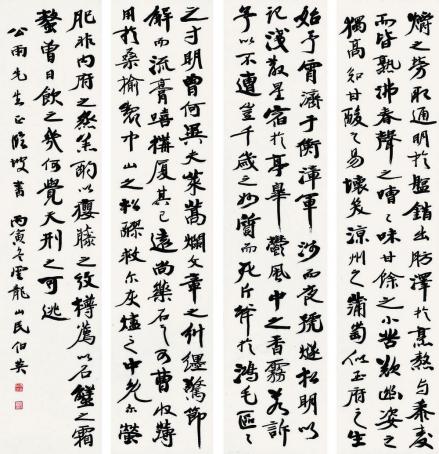 始予宵濟于衡漳軍涉而夜號燧松明以
記淺散星宿於亭皋鬱風中之香霧若訴
予以不遭豈千歲之妙質而死斤斧於鴻毛區區
之寸明曾何異夫束蒿爛文章之糾纆驚節
解而流膏嘻構厦其已遠尚藥石之可曹收薄
用於桑榆製中山之松醪救尔灰燼之中免尔螢
爝之勞取通明於盤錯出肪澤於烹熬與黍麥
而皆熟沸春聲之嘈嘈味甘餘之小苦歎幽姿之
獨高知甘酸之易壞笑涼州之蒲萄似玉府之生
肥非內府之烝羔酌以癭藤之紋樽薦以石蟹之霜
螯曾日飲之幾何覺天刑之可逃
公雨先生正臨坡書丙寅冬雲龍山民伯英